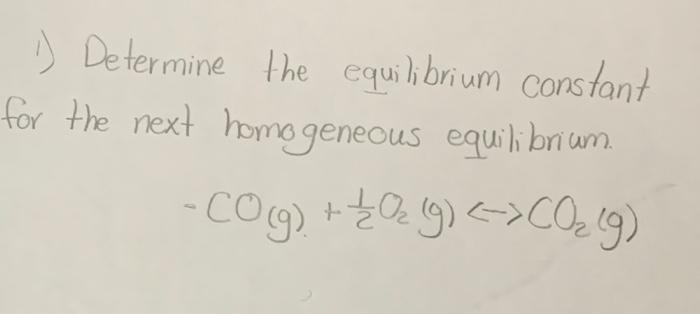 1) Determine the equilibrium constant
for the next homogeneous equilibrium.
- CO(g) + ½ O₂ (g) <-> CO₂ (g)